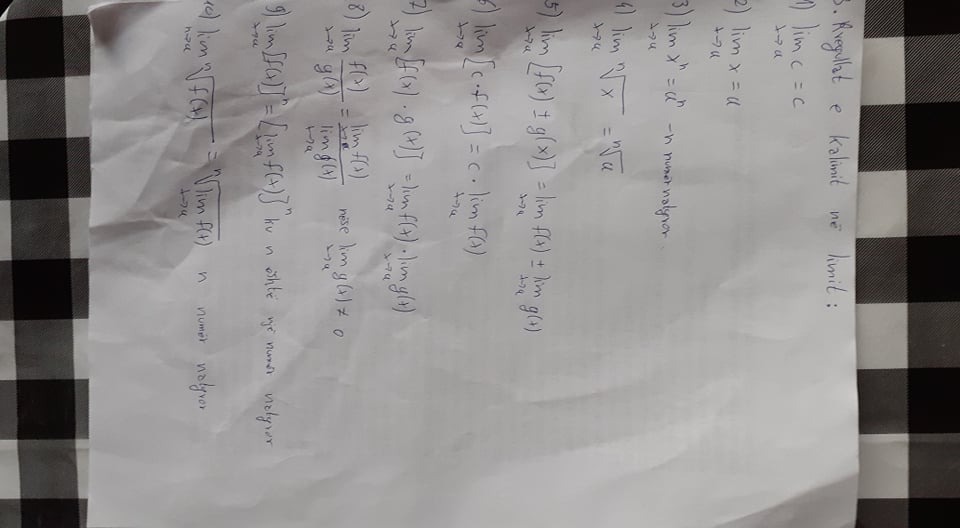 3. Rregullat e kalimit në limit :
1) lim_{x→a} c = c
2) lim_{x→a} x = a
3) lim_{x→a} x^n = a^n - n numër natyror
4) lim_{x→a} ⁿ√x = ⁿ√a
5) lim_{x→a} [f(x) ± g(x)] = lim_{x→a} f(x) ± lim_{x→a} g(x)
6) lim_{x→a} [c · f(x)] = c · lim_{x→a} f(x)
7) lim_{x→a} [f(x) · g(x)] = lim_{x→a} f(x) · lim_{x→a} g(x)
8) lim_{x→a} f(x)/g(x) = lim_{x→a} f(x) / lim_{x→a} g(x) nëse lim_{x→a} g(x) ≠ 0
9) lim_{x→a} [f(x)]^n = [lim_{x→a} f(x)]^n ku n është një numër natyror
10) lim_{n→a} ⁿ√f(x) = ⁿ√lim_{x→a} f(x) n numër natyror